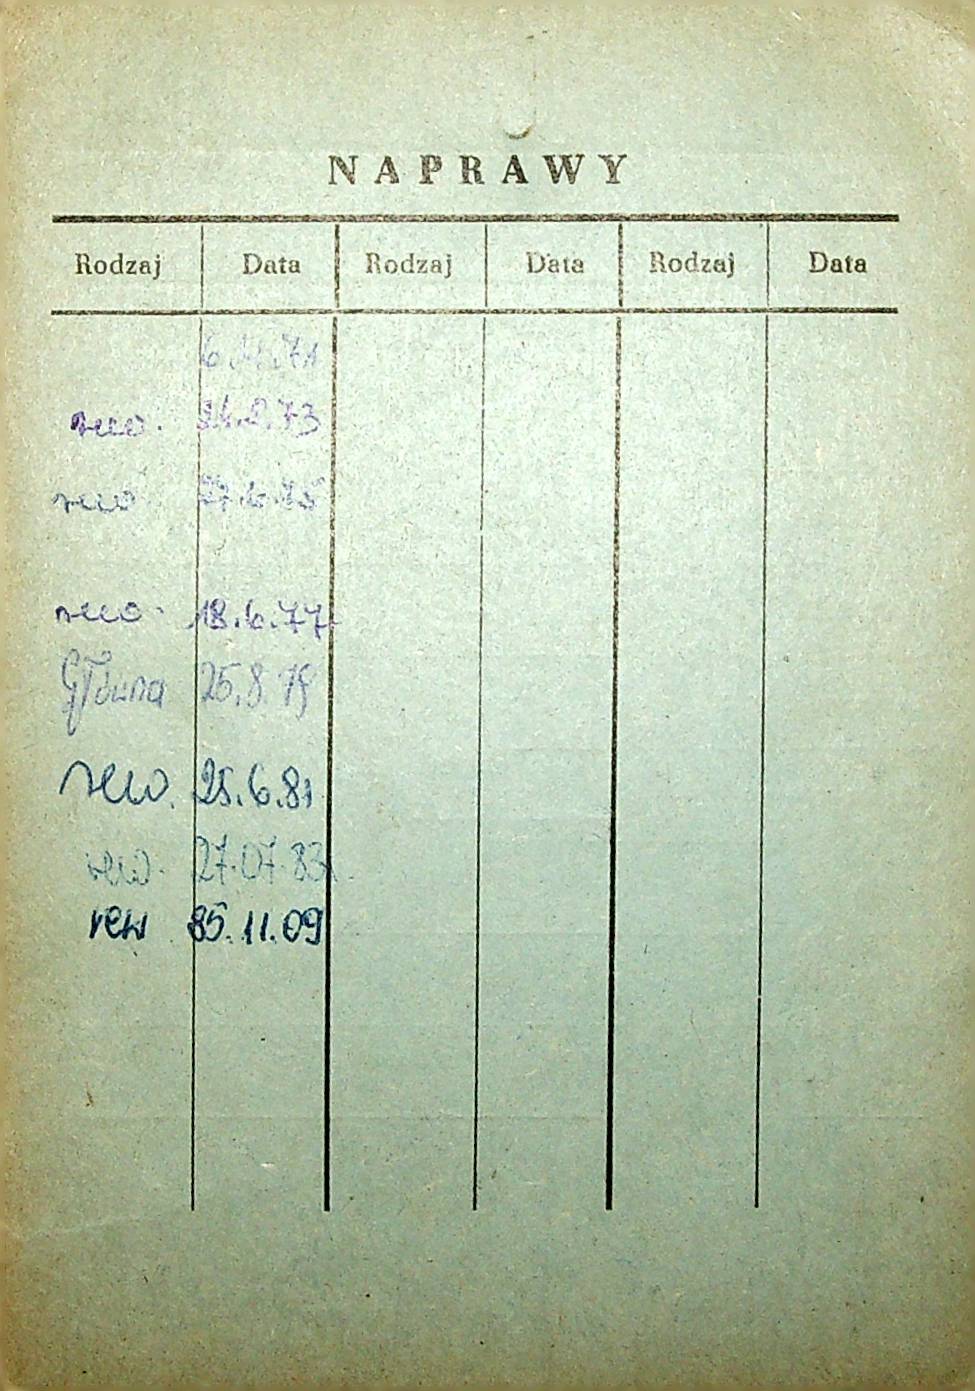 NAPRAWY
Rodzaj Data Rodzaj Data Rodzaj Data
rew.
rew
rew. 18.6.77.
Główna 25.8.79
rew. 25.6.81
rew. 27.07.83
rew 85.11.09